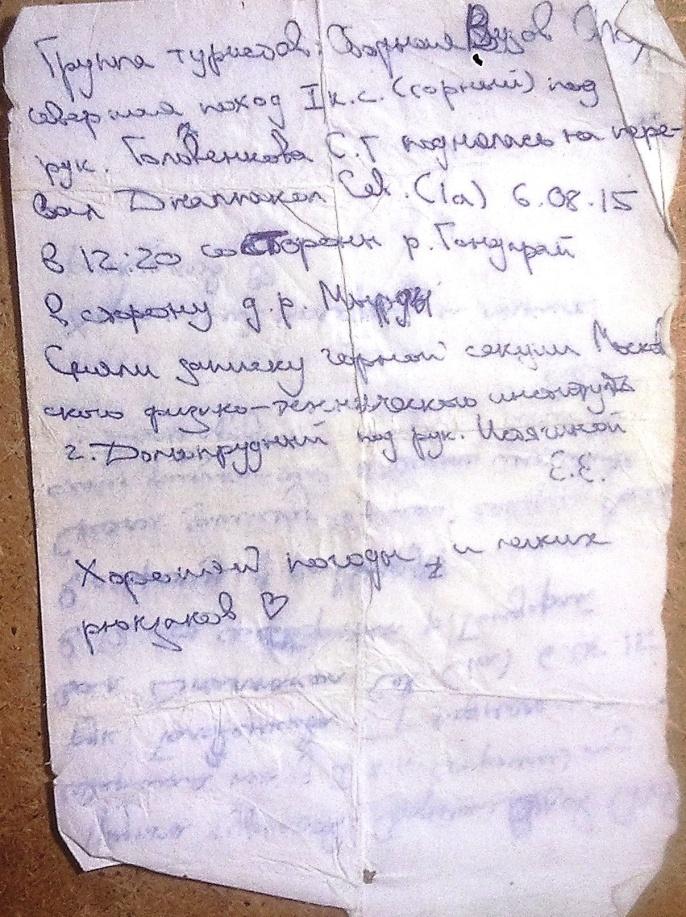 Группа туристов: Сборная Вузов
совершая поход I к.с. (горный) под
рук. Головенкова С.Г поднялась на пере-
вал Джалпакол Сев. (1а) 6.08.15
в 12:20 со стороны р. Гондарай
в сторону д.р. Мырды
Сняли записку горной секции Москов
ского физико-технического института
г. Долгопрудный под рук.
Е.Е.
Хорошей погоды, и легких
рюкзаков ♡